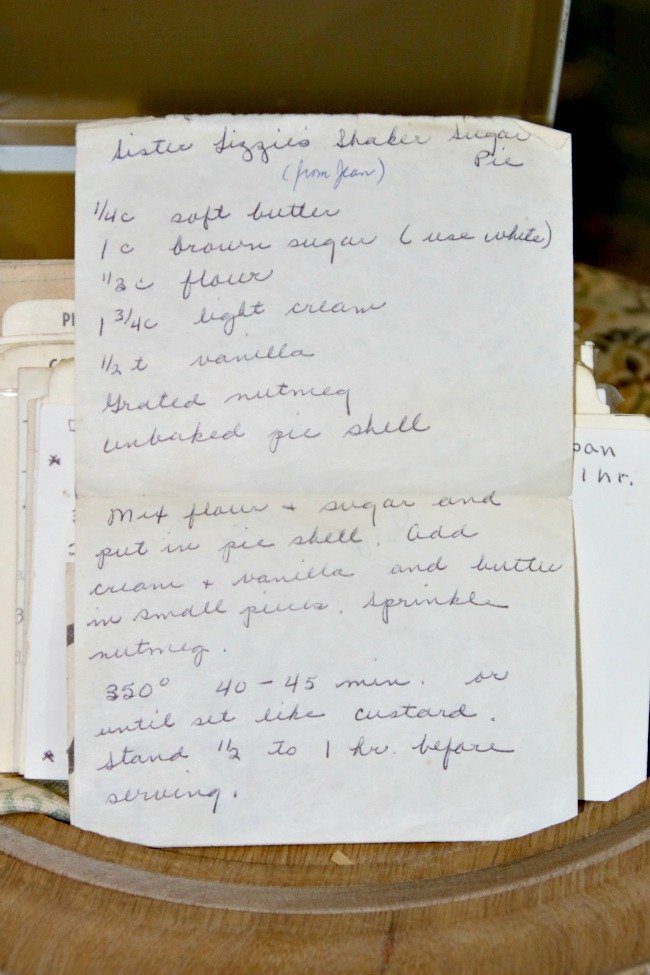 Sister Lizzie's Shaker Sugar
Pie
(from Jean)
1/4 c soft butter
1 c brown sugar (use white)
1/3 c flour
1 3/4 c light cream
1/2 t vanilla
Grated nutmeg
unbaked pie shell
Mix flour + sugar and
put in pie shell. Add
cream + vanilla and butter
in small pieces. Sprinkle
nutmeg.
350° 40-45 min. or
until set like custard.
Stand 1/2 to 1 hr. before
serving.
pan
1 hr.